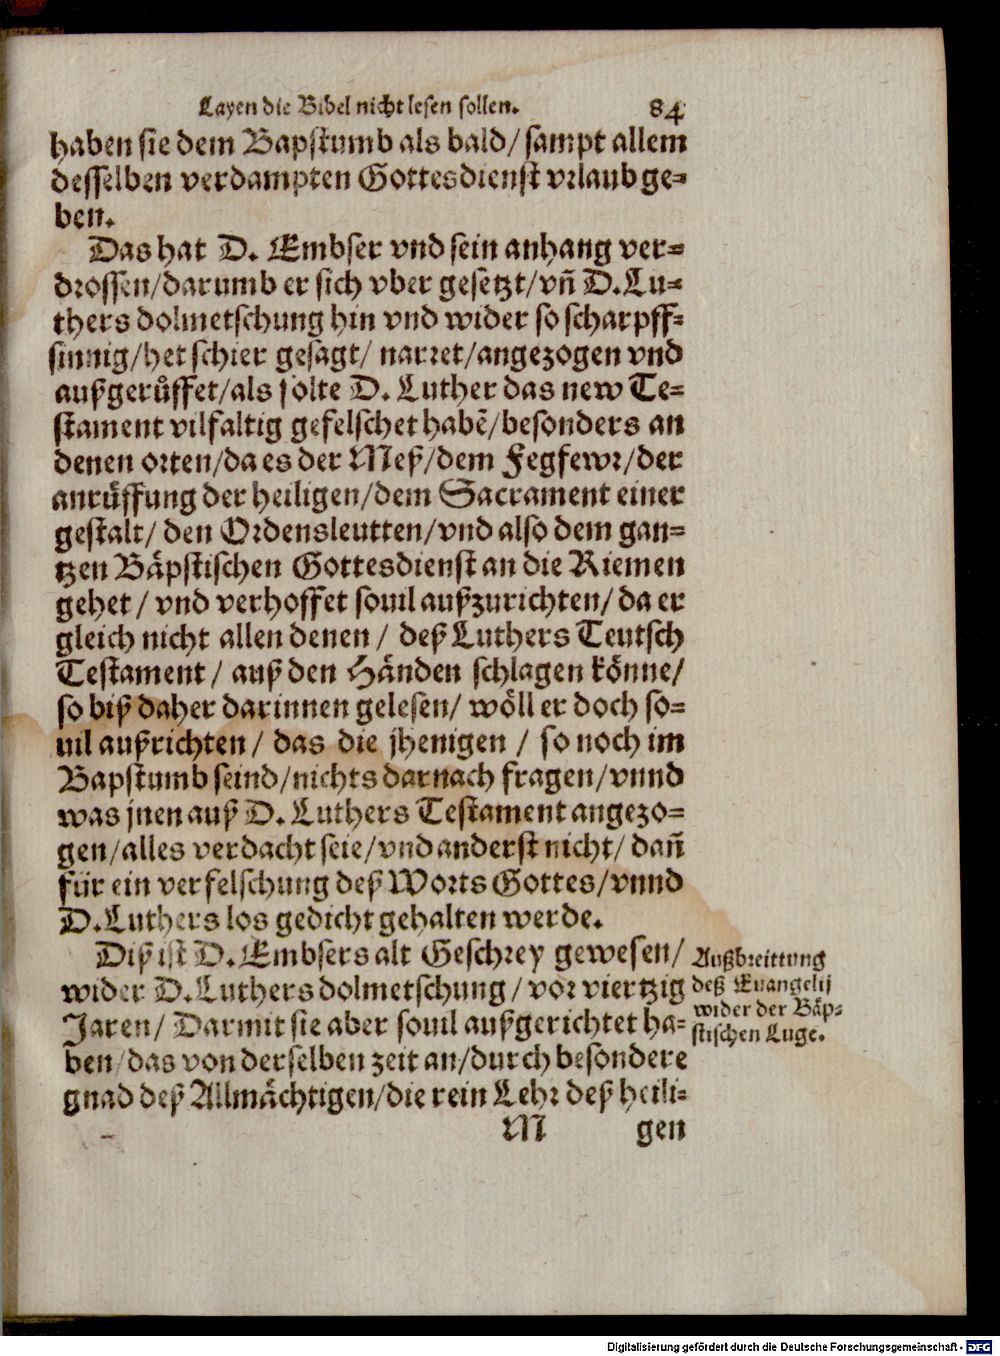 Layen die Bibel nicht lesen sollen. 84
haben sie dem Bapstumb als bald/ sampt allem
desselben verdampten Gottesdienst vrlaub ge-
ben.
Das hat D. Embser vnd sein anhang ver-
drossen/darumb er sich vber gesetzt/vñ D.Lu-
thers dolmetschung hin vnd wider so scharpff-
sinnig/het schier gesagt/ narret/angezogen vnd
außgerůffet/als solte D. Luther das new Te-
stament vilfaltig gefelschet habẽ/besonders an
denen orten/da es der Meß/dem Fegfewr/der
anrůffung der heiligen/dem Sacrament einer
gestalt/ den Ordensleutten/vnd also dem gan-
tzen Bäpstischen Gottesdienst an die Riemen
gehet / vnd verhoffet souil außzurichten/ da er
gleich nicht allen denen / deß Luthers Teutsch
Testament / auß den Händen schlagen könne/
so biß daher darinnen gelesen/ wöll er doch so-
uil außrichten / das die jhenigen / so noch im
Bapstumb seind/nichts darnach fragen/vnnd
was jnen auß D. Luthers Testament angezo-
gen/alles verdacht seie/vnd anderst nicht/ dañ
für ein verfelschung deß Worts Gottes/vnnd
D.Luthers los gedicht gehalten werde.
Diß ist D. Embsers alt Geschrey gewesen/
wider D.Luthers dolmetschung/ vor viertzig
Jaren/ Darmit sie aber souil außgerichtet ha-
ben/das von derselben zeit an/durch besondere
gnad deß Allmächtigen/die rein Lehr deß heili-
M gen
Außbreittung
deß Euangelij
wider der Bäp-
stischen Luge.
Digitalisierung gefördert durch die Deutsche Forschungsgemeinschaft - DFG